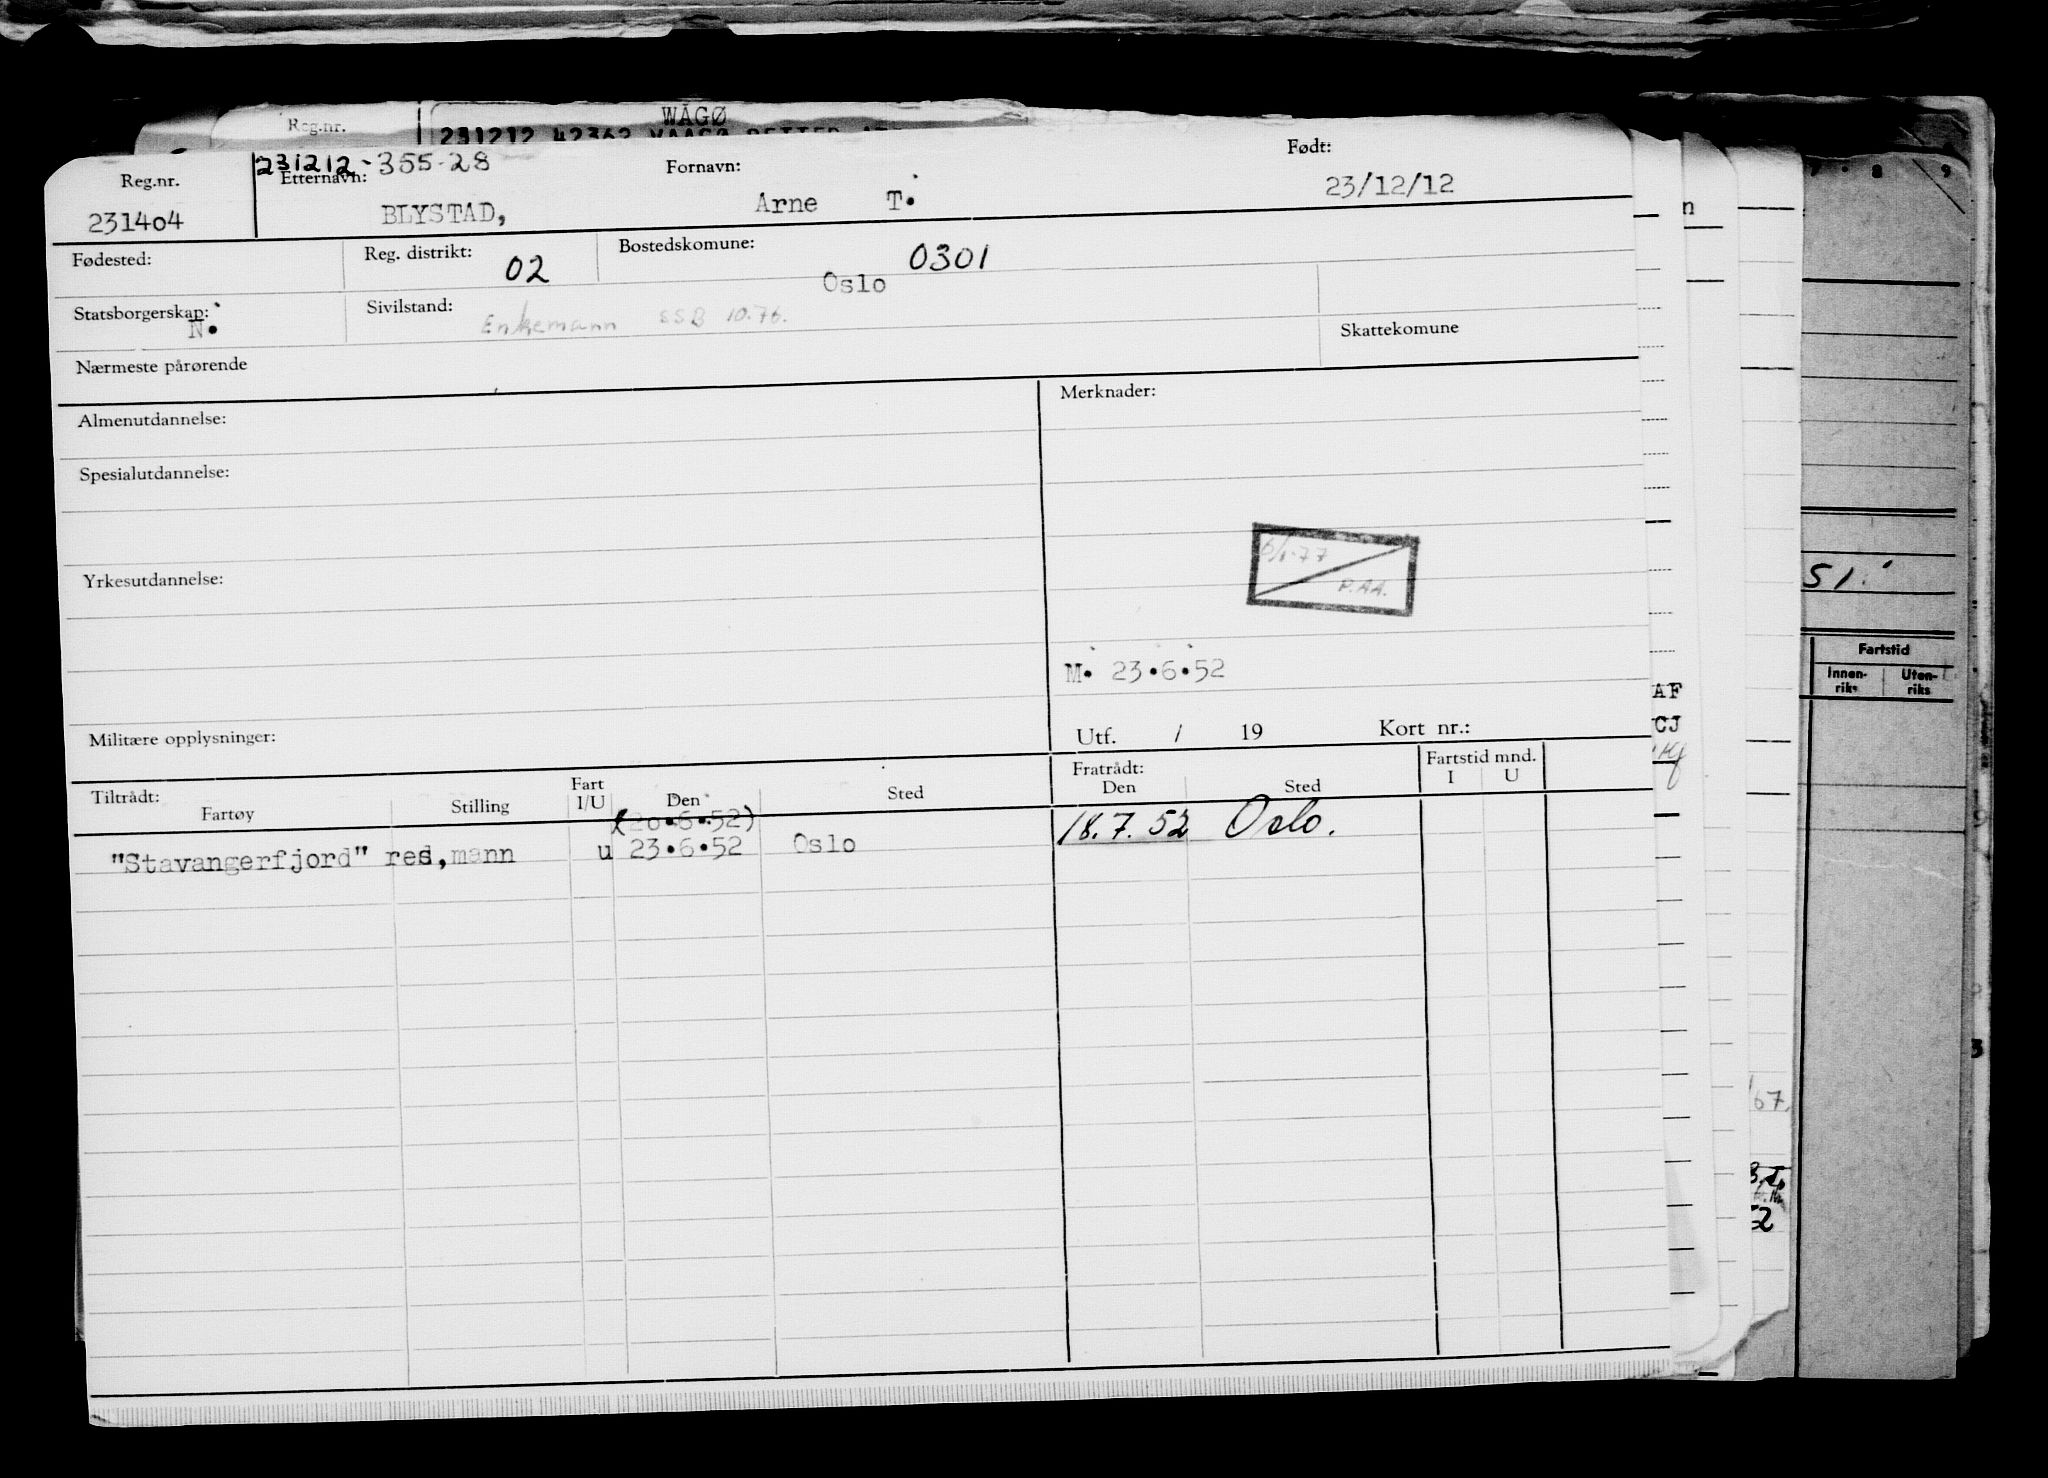 WÅGØ
Reg.nr.
231212-355-28
Reg.nr. Etternavn: Fornavn: Født:
231404 BLYSTAD, Arne T. 23/12/12
Fødested: Reg. distrikt: 02 Bostedskomune: 0301
Oslo
Statsborgerskap: N. Sivilstand: Enkemann SSB 10.76.
Skattekomune
Nærmeste pårørende
Almenutdannelse: Merknader:
Spesialutdannelse:
Yrkesutdannelse:
6/1-77
P.AA.
M. 23.6.52
Militære opplysninger: Utf. / 19 Kort nr.:
Tiltrådt: Fartøy Stilling Fart I/U Den Sted Fratrådt: Den Sted Fartstid mnd. I U
(20.6.52)
"Stavangerfjord" res,mann u 23.6.52 Oslo 18.7.52 Oslo.
n
7 · 8 9
51.
Fartstid
Innen-riks Uten-riks
AF
CJ
67.
52